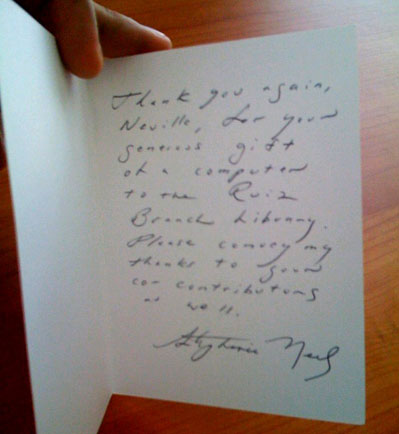 Thank you again,
Neville, for your
generous gift
of a computer
to the Ruiz
Branch Library.
Please convey my
thanks to your
co-contributors
as well.
Stephanie